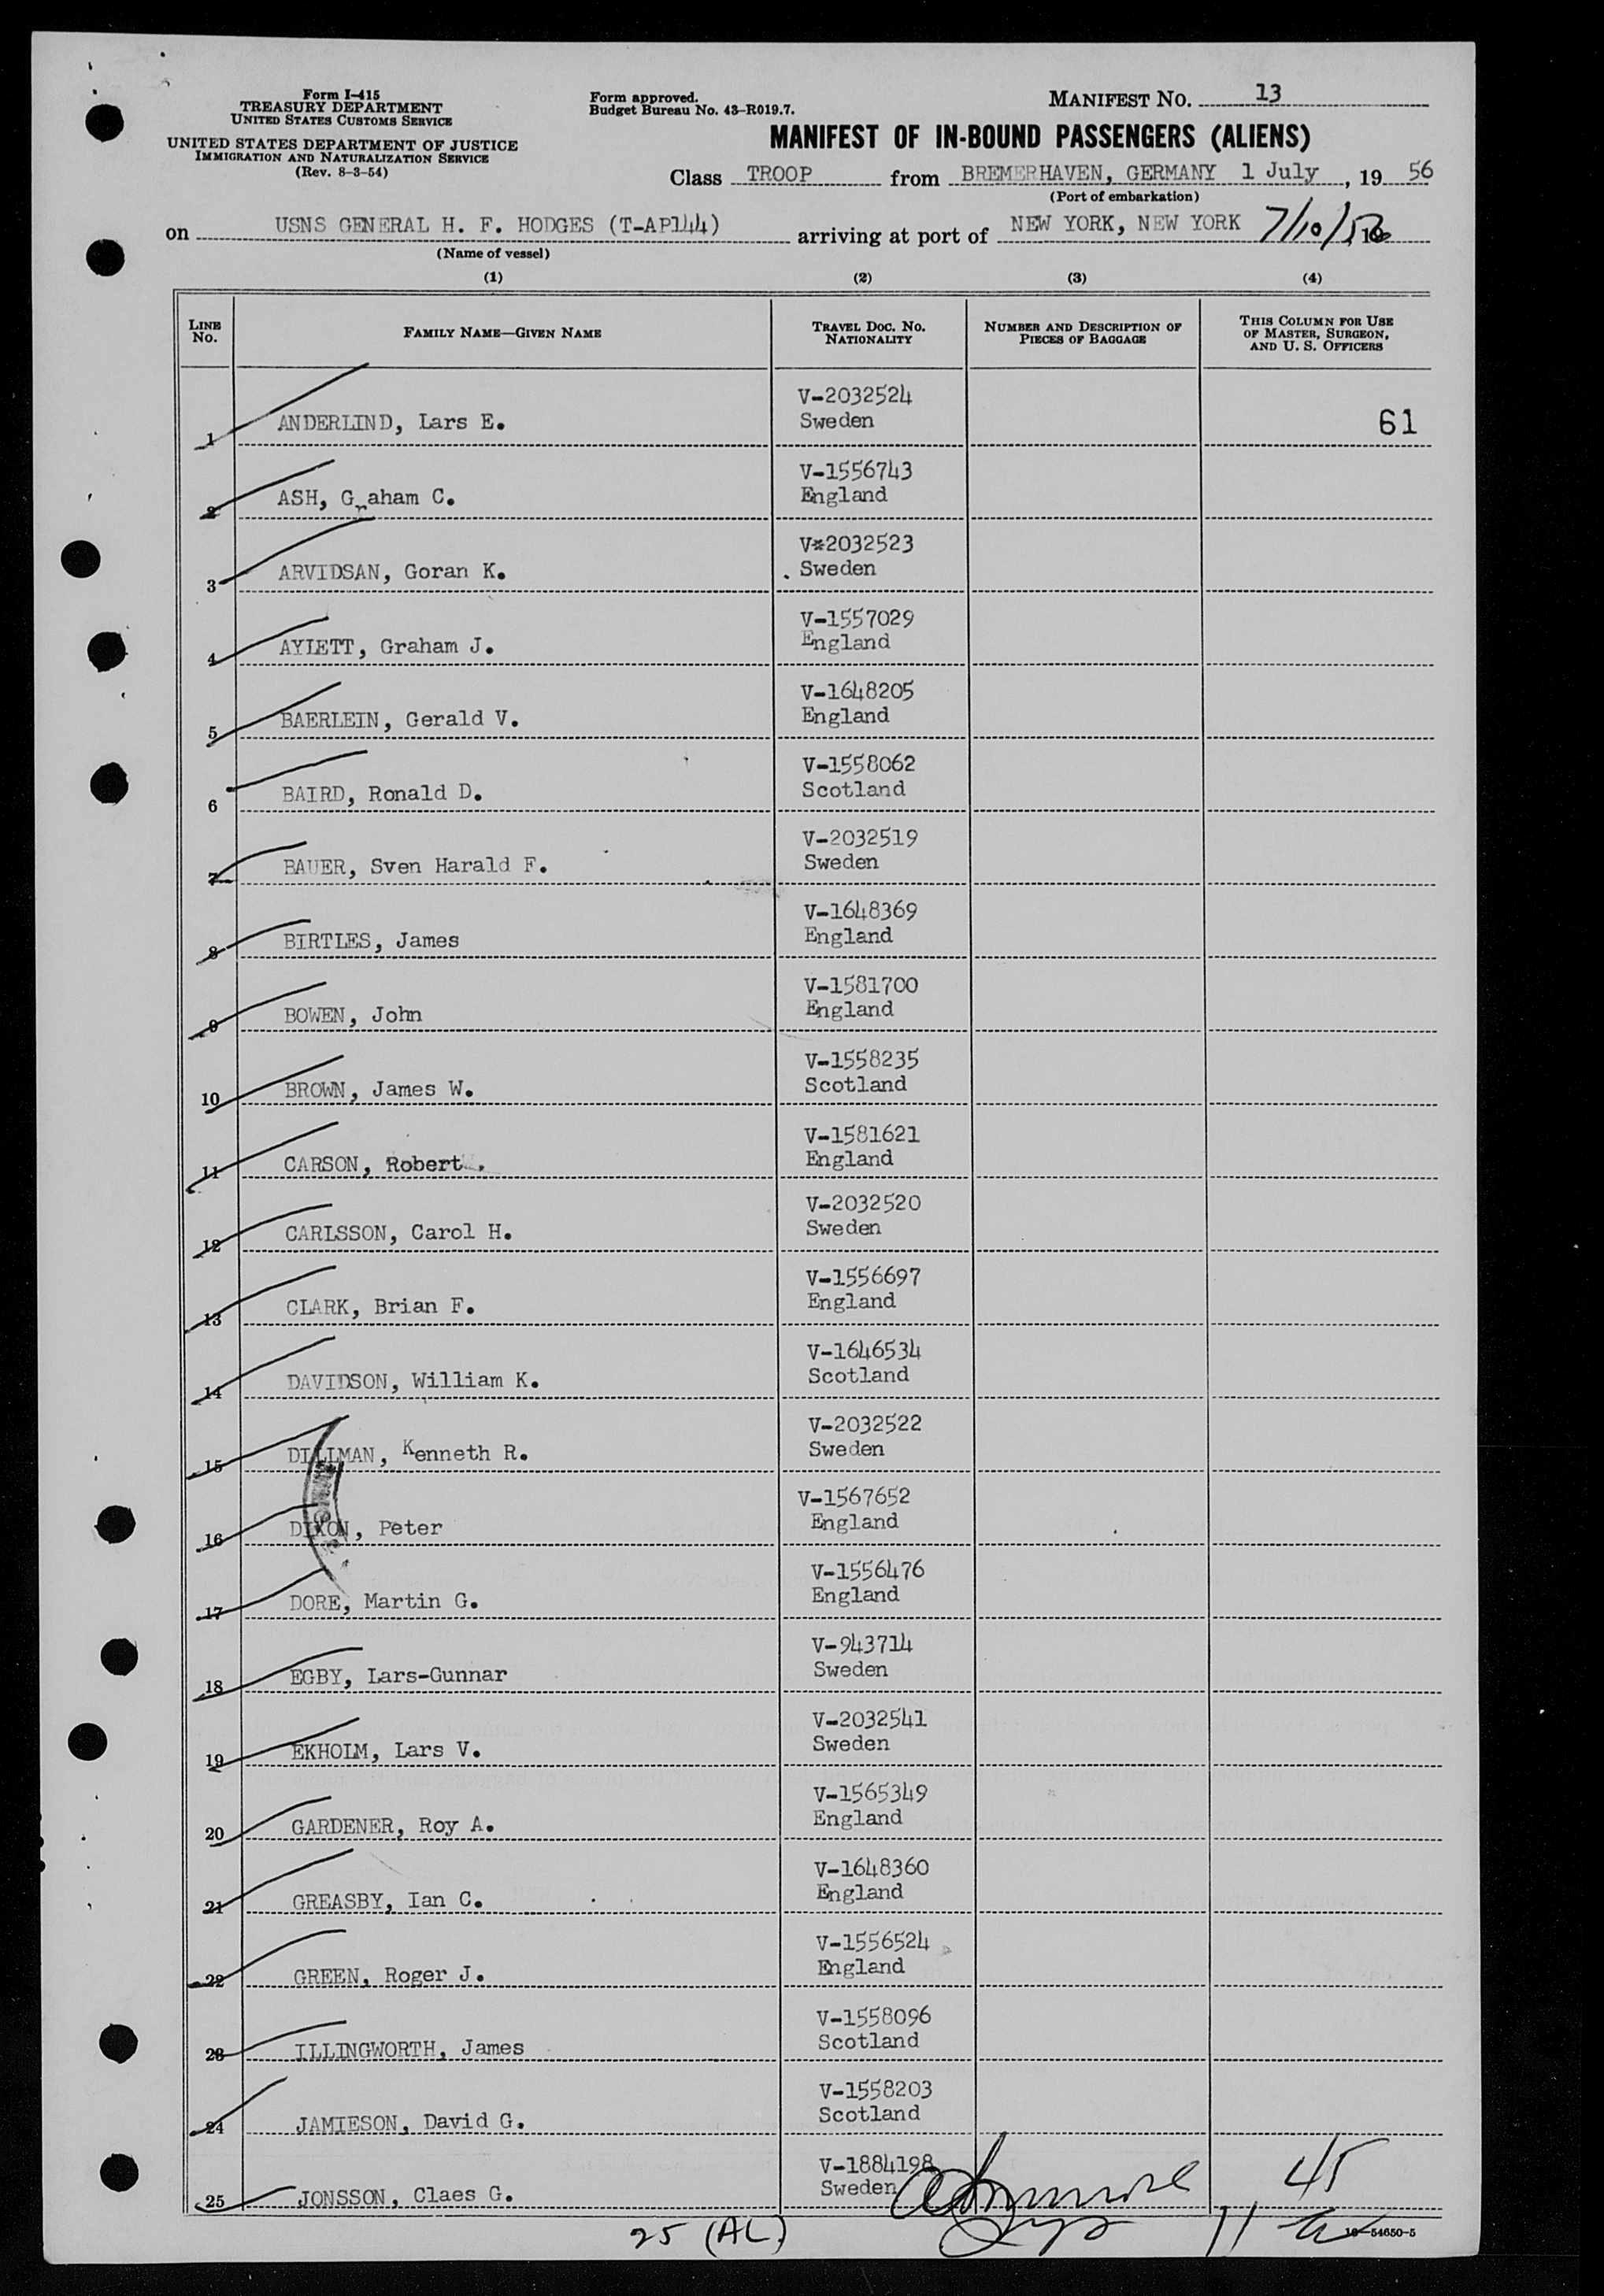 Form I-415
TREASURY DEPARTMENT
UNITED STATES CUSTOMS SERVICE
UNITED STATES DEPARTMENT OF JUSTICE
IMMIGRATION AND NATURALIZATION SERVICE
(Rev. 8-3-54)
Form approved.
Budget Bureau No. 43-R019.7.
MANIFEST NO. 13
MANIFEST OF IN-BOUND PASSENGERS (ALIENS)
Class TROOP from BREMERHAVEN, GERMANY 1 July, 19 56
(Port of embarkation)
on USNS GENERAL H. F. HODGES (T-AP144) arriving at port of NEW YORK, NEW YORK 7/10/56
(Name of vessel)
(1) (2) (3) (4)
LINE No. FAMILY NAME—GIVEN NAME TRAVEL DOC. NO. NATIONALITY NUMBER AND DESCRIPTION OF PIECES OF BAGGAGE THIS COLUMN FOR USE OF MASTER, SURGEON, AND U. S. OFFICERS
1 ANDERLIND, Lars E. V-2032524 Sweden 61
2 ASH, Graham C. V-1556743 England
3 ARVIDSAN, Goran K. V*2032523 . Sweden
4 AYLETT, Graham J. V-1557029 England
5 BAERLEIN, Gerald V. V-1648205 England
6 BAIRD, Ronald D. V-1558062 Scotland
7 BAUER, Sven Harald F. V-2032519 Sweden
8 BIRTLES, James V-1648369 England
9 BOWEN, John V-1581700 England
10 BROWN, James W. V-1558235 Scotland
11 CARSON, Robert . V-1581621 England
12 CARLSSON, Carol H. V-2032520 Sweden
13 CLARK, Brian F. V-1556697 England
14 DAVIDSON, William K. V-1646534 Scotland
15 DILLMAN, Kenneth R. V-2032522 Sweden
16 DIXON, Peter V-1567652 England
17 DORE, Martin G. V-1556476 England
18 EGBY, Lars-Gunnar V-943714 Sweden
19 EKHOLM, Lars V. V-2032541 Sweden
20 GARDENER, Roy A. V-1565349 England
21 GREASBY, Ian C. V-1648360 England
22 GREEN, Roger J. V-1556524 England
23 ILLINGWORTH, James V-1558096 Scotland
24 JAMIESON, David G. V-1558203 Scotland
25 JONSSON, Claes G. V-1884198 Sweden 45
25 (AL) 11
16—54650-5